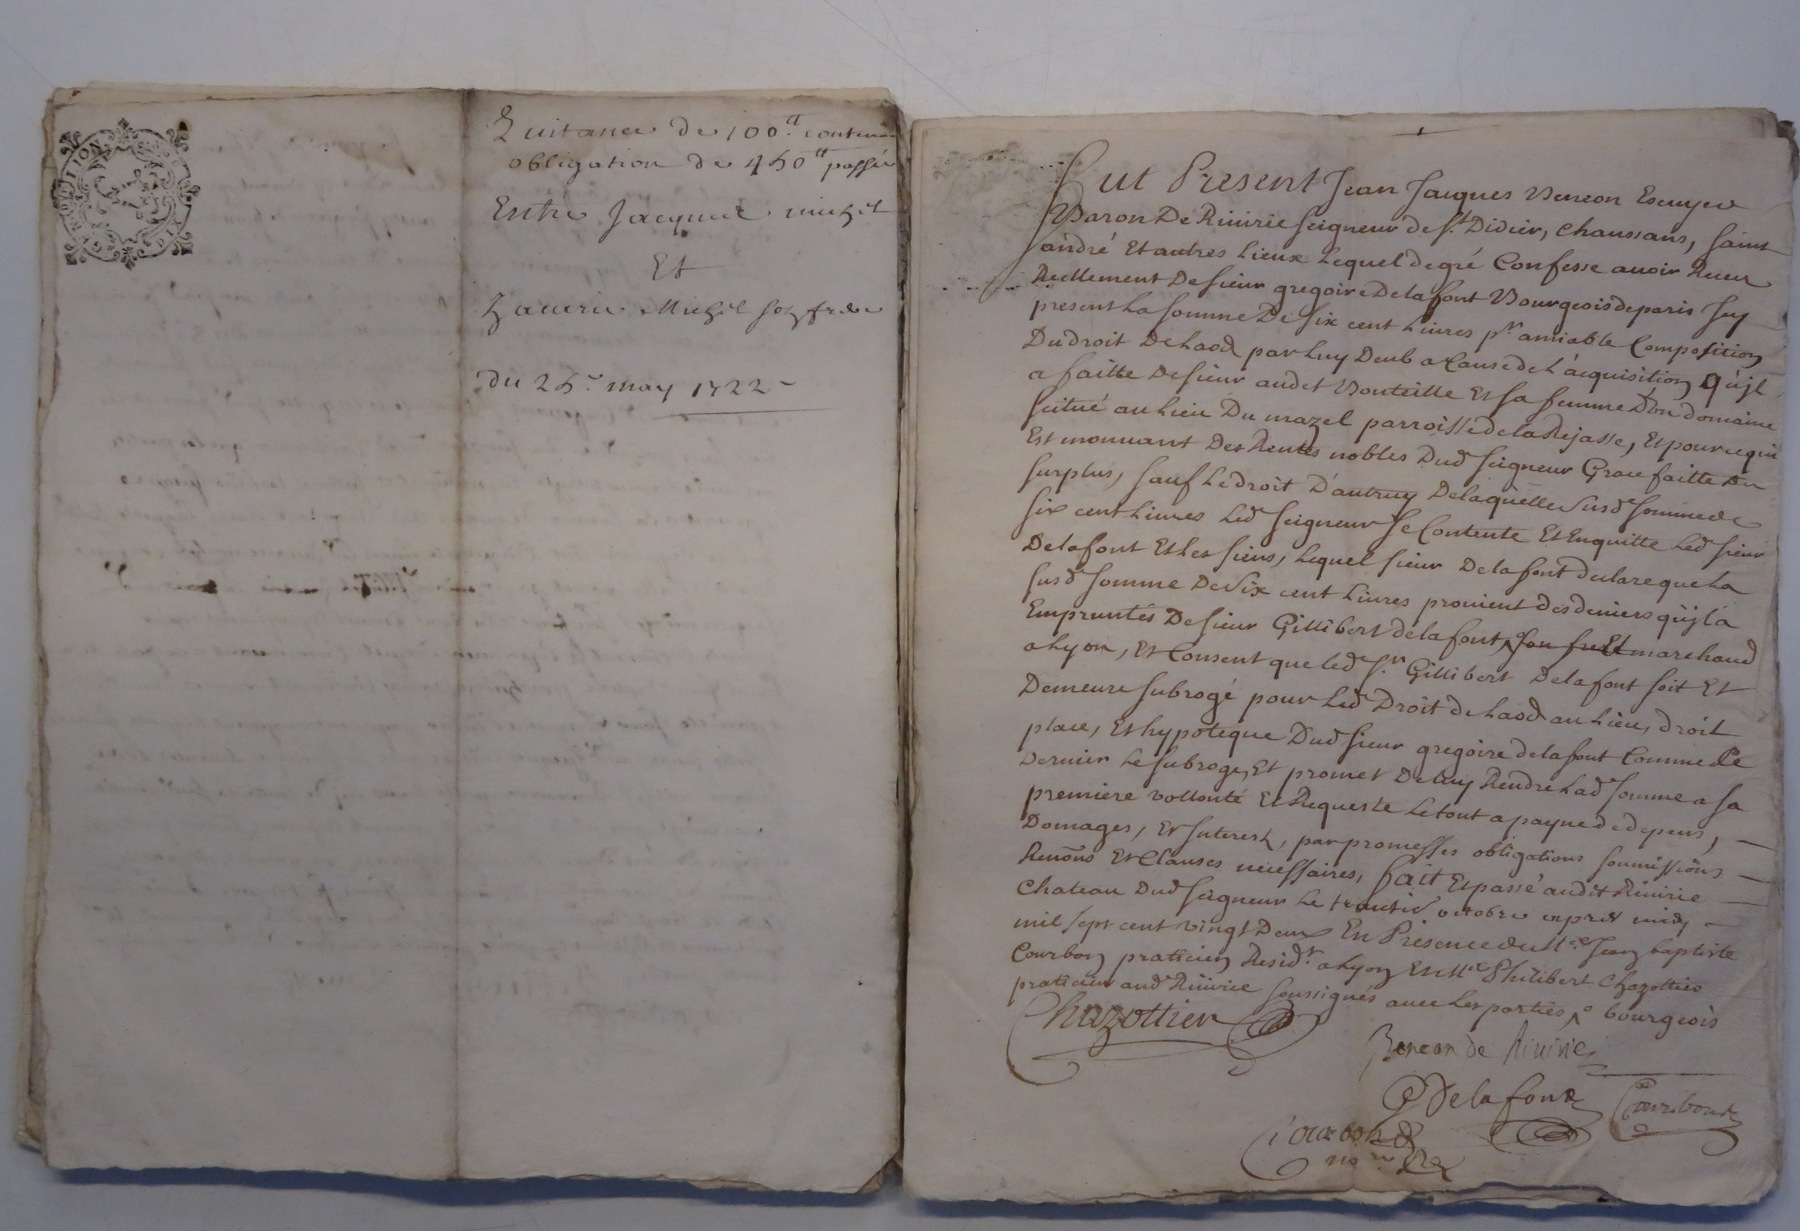 Quitance de 100.tt conten
obligation de 450tt passée
Entre Jacques michel
Et
Michel
du 25e may 1722
Fut Present Jean Jacques Beneon Escuyer
Baron De Riuirie seigneur de St. Didier, chaussans, saint
andré Et autres Lieux Lequel de gré Confesse auoir Receu
Reellement De sieur gregoire Delafont Bourgeois de paris Icy
present La somme De six cent Liures pr amiable Composition
Du droit De Laod par Luy Deub a Cause de L'acquisition qu'jl
a faitte De sieur audet Bouteille Et sa femme d'un domaine
scitué au Lieu Du mazel parroisse de la Rejasse, Et pour ce qui
Est mouuant Des Rentes nobles Dud seigneur Grace faitte Du
surplus, sauf Le droit D'autruy De laquelle susde somme de
six cent Liures Led seigneur se Contente Et Enquitte Led sieur
Delafont Et Les siens, Lequel sieur Delafont declare que La
susd somme De six cent Liures prouient des deniers qu'jl a
Empruntés De sieur Gillibert delafont, son frere marchand
a Lyon, Et Consent que led sr. Gillibert Delafont soit Et
Demeure subrogé pour Led Droit de Laod au Lieu, droit
place, Et hypoteque Dud sieur gregoire delafont Comme Ce
Dernier Le subroge, Et promet De Luy Rendre Lade somme a sa
premiere vollonté Et Requeste Le tout a payne de depens,
Domages, Et Interest, par promesses obligations soumissions
Renons Et Clauses necessaires, fait Et passé audit Riuirie
Chateau Dud seigneur Le octobre apres midy
mil sept cent vingt Deux En Presence de Me Jean baptiste
Courbon praticien Residt a Lyon Et Me Philibert Chazottier
praticien aud Riuirie soussignés auec Les parties, bourgeois
Chazottier
Beneon de Riuirie
Delafont
Courbon